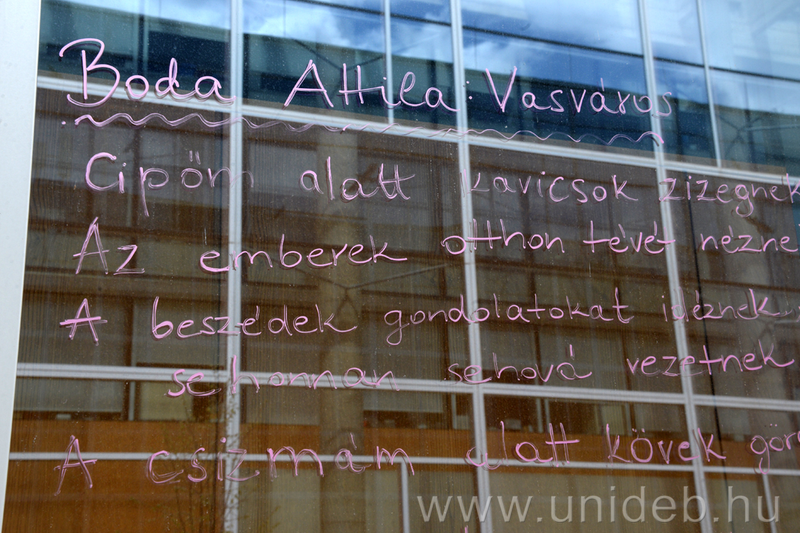 Boda Attila: Vasváros
Cipőm alatt kavicsok zizegnek
Az emberek otthon tévét nézne
A beszédek gondolatokat idéznek,
sehonnan sehová vezetnek
A csizmám alatt kövek gör
www.unideb.hu